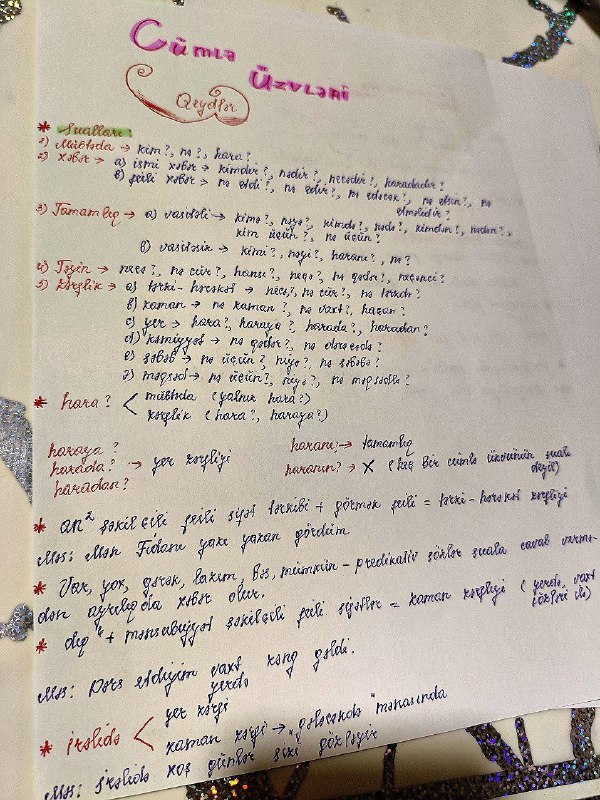 Cümlə
Üzvləri
Qeydlər
* Sualları:
1) Mübtəda → kim?, nə?, hara?
2) Xəbər → a) ismi xəbər → kimdir?, nədir?, necədir?, haradadır?
b) feili xəbər → nə etdi?, nə edir?, nə edəcək?, nə etsin?, nə
etməlidir?
3) Tamamlıq → a) vasitəli → kimə?, nəyə?, kimdə?, nədə?, kimdən?, nədən?,
kim üçün?, nə üçün?
b) vasitəsiz → kimi?, nəyi?, haranı?, nə?
4) Təyin → necə?, nə cür?, hansı?, neçə?, nə qədər?, neçənci?
5) Zərflik → a) tərzi-hərəkət → necə?, nə cür?, nə tərzdə?
b) zaman → nə zaman?, nə vaxt?, haçan?
c) yer → hara?, haraya?, harada?, haradan?
d) kəmiyyət → nə qədər?, nə dərəcədə?
e) səbəb → nə üçün?, niyə?, nə səbəbə?
ə) məqsəd → nə üçün?, niyə?, nə məqsədlə?
* hara? < mübtəda (yalnız hara?)
zərflik (hara?, haraya?)
haraya?
harada? → yer zərfliyi
haradan?
haranı? → tamamlıq
haranın? → X (heç bir cümlə üzvünün sualı
deyil)
* an² şəkilçili feili sifət tərkibi + görmək feili = tərzi-hərəkət zərfliyi
Məs: Mən Fidanı yazı yazan gördüm
* Var, yox, gərək, lazım, bəs, mümkün - predikativ sözlər suala cavab vermə-
dən ayrılıqda xəbər olur.
* dıq⁴ + mənsubiyyət şəkilçili feili sifətlər = zaman zərfliyi (yerdə, vaxt
sözləri ilə)
Məs: Dərs etdiyim vaxt zəng gəldi.
yerdə
* irəlidə < yer zərfi
zaman zərfi → "gələcəkdə" mənasında
Məs: İrəlidə xoş günlər sizi gözləyir